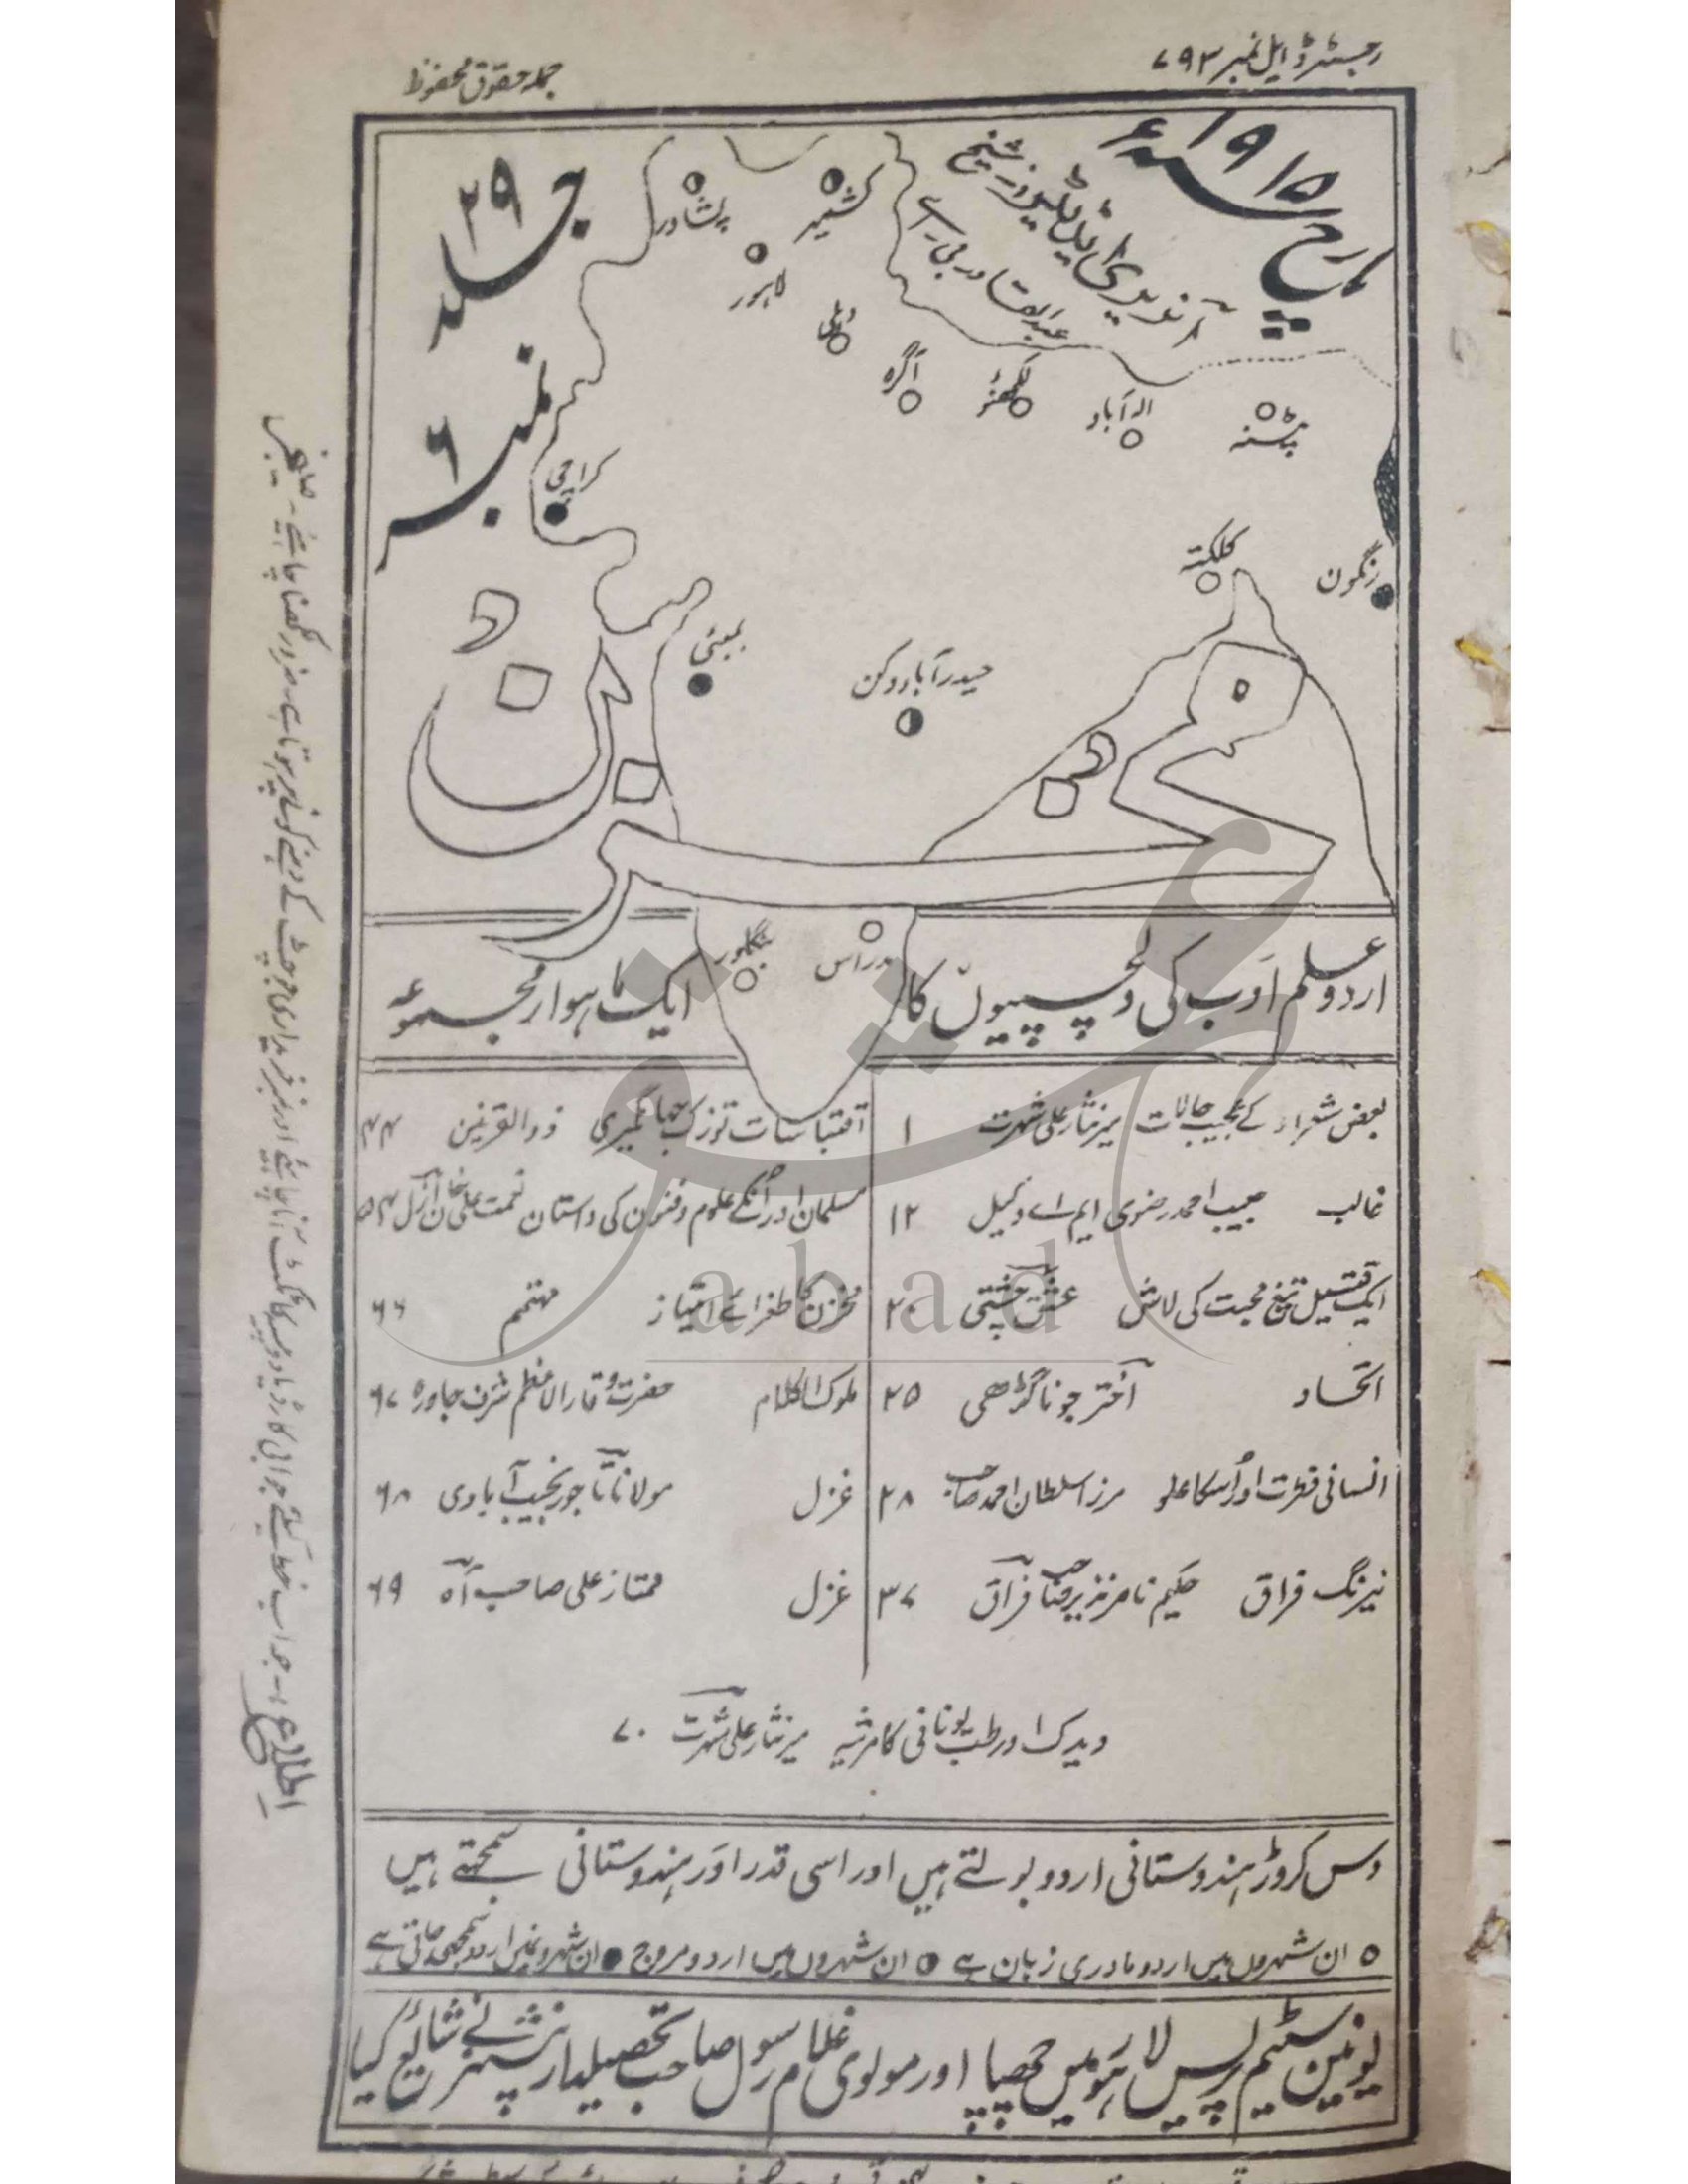 رجسٹرڈ ایل نمبر ۷۹۳
جملہ حقوق محفوظ
مارچ سنہ ۱۹۱۵ء
آنریری ایڈیٹر شیخ
عبدالقادر بی اے
جلد ۲۹
نمبر ۶
پشاور
کشمیر
لاہور
دہلی
آگرہ
لکھنؤ
الہ آباد
پٹنہ
کراچی
کلکتہ
رنگون
بمبئی
حیدرآباد دکن
مخزن
بنگلور
مدراس
اردو علم ادب کی دلچسپیوں کا ایک ماہوار مجموعہ
بعض شعراء کے عجیب حالات میر نثار علی شہرت ۱
غالب حبیب احمد رضوی ایم اے وکیل ۱۲
ایک قتیل تیغ محبت کی لاش عشق چشتی ۲۰
اتحاد اختر جوناگڑھی ۲۵
انسانی فطرت اور اُسکا علو مرزا سلطان احمد صاحب ۲۸
نیرنگ فراق حکیم ناصر نذیر صاحب فراق ۳۷
اقتباسات توزک جہانگیری ذوالقرنین ۴۴
مسلمان اور اُنکے علوم و فنون کی داستان نعمت علی خان ۵۴
مخزن کا طغرائے امتیاز مہتمم ۶۶
ملوک الکلام حضرت وقار الاعظم شرف جاورہ ۶۷
غزل مولانا تاجور نجیب آبادی ۶۸
غزل ممتاز علی صاحب آہ ۶۹
ویدک اور طب یونانی کا مرثیہ میر نثار علی شہرت ۷۰
دس کروڑ ہندوستانی اردو بولتے ہیں اور اسی قدر اَور ہندوستانی سمجھتے ہیں
○ ان شہروں میں اردو مادری زبان ہے ◑ ان شہروں میں اردو مروج ● ان شہرونمیں اردو سمجھی جاتی ہے
یونین سٹیم پریس لاہور میں چھپا اور مولوی غلام رسول صاحب تحصیلدار پنشنر نے شائع کیا
اطلاع :۔ جواب خط کیلئے جوابی کارڈ یا دو پیسہ کا ٹکٹ آنا چاہئے اور نمبر خریداری جو چٹ کے دہنے کونے پر ہوتا ہے ضرور لکھنا چاہئے۔ منیجر
abad